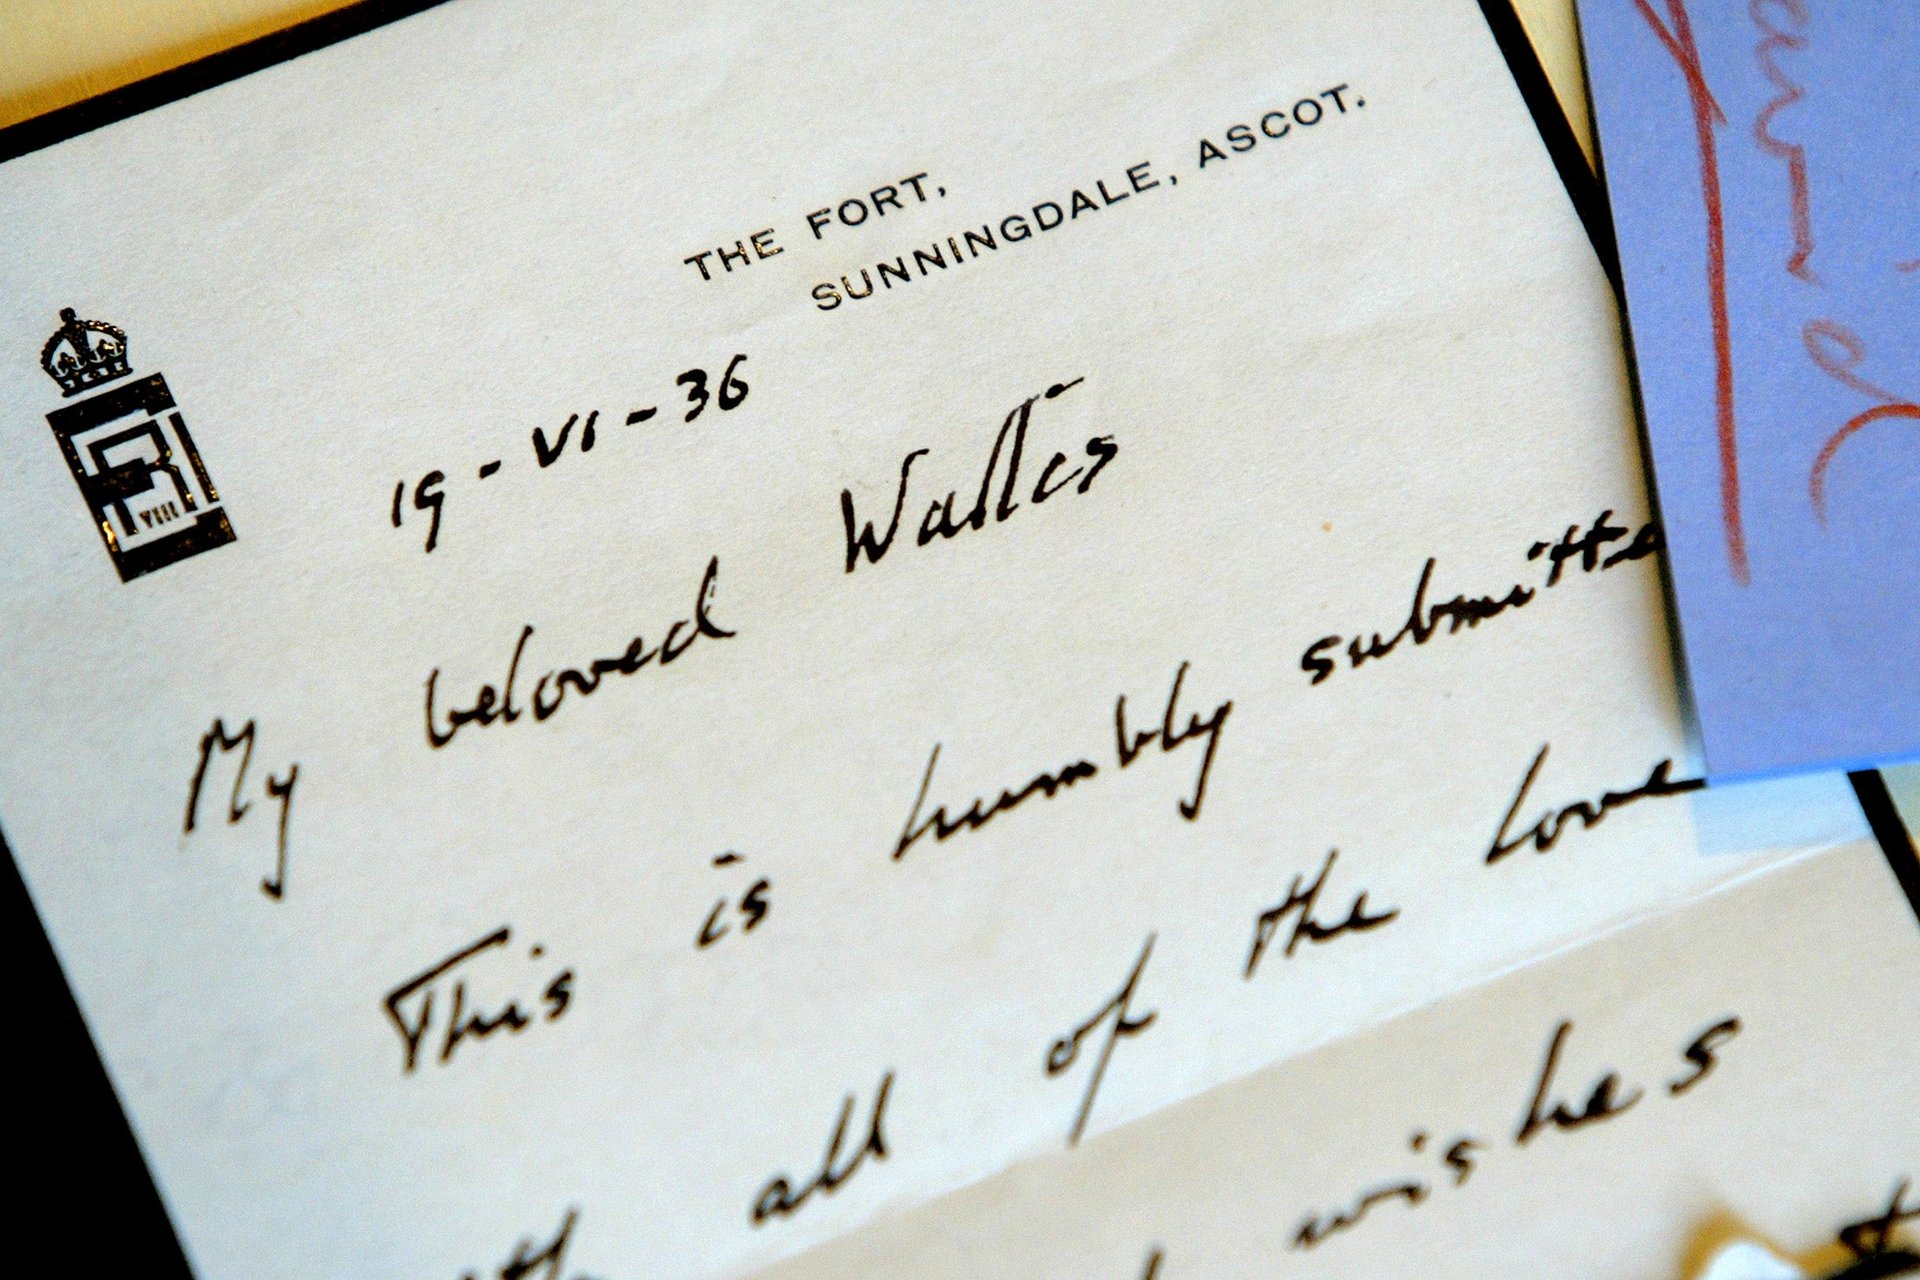 THE FORT,
SUNNINGDALE, ASCOT.
ERI
VIII
19-VI-36
My beloved Wallis
This is humbly submitte
all of the love
wishes